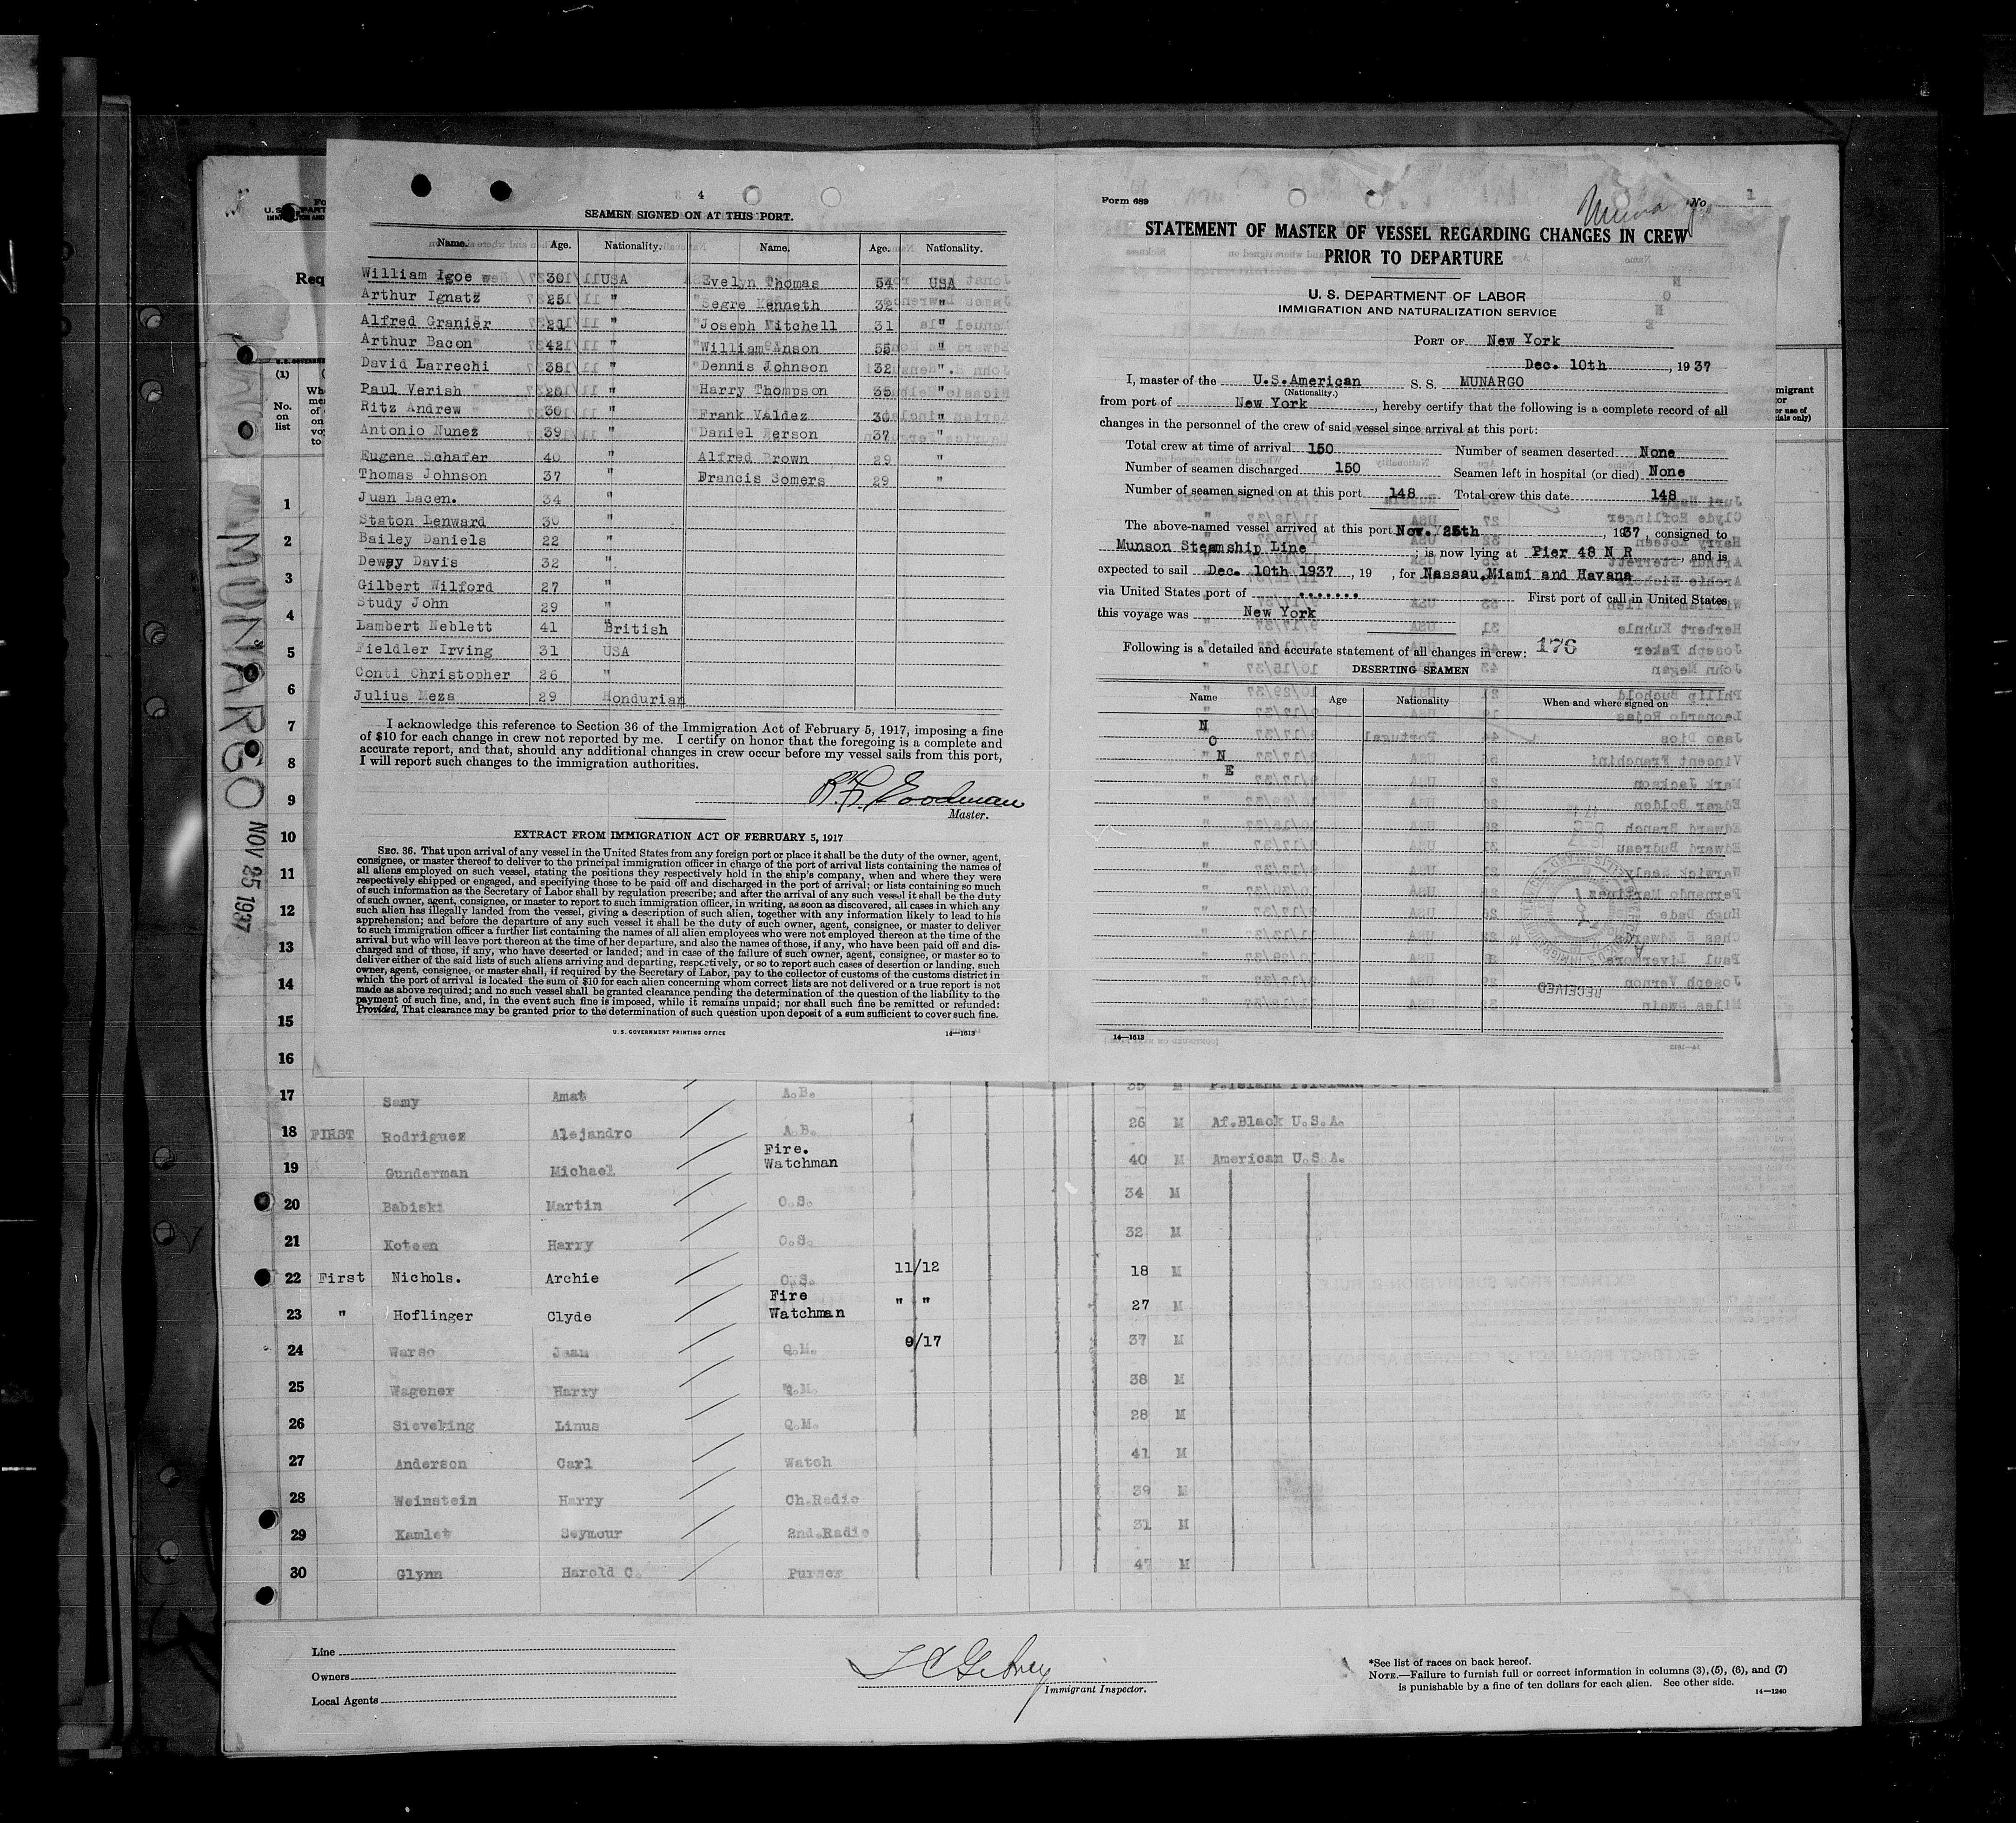 4
SEAMEN SIGNED ON AT THIS PORT.
Name. Age. Nationality. Name. Age. Nationality.
William Igoe 30 USA Evelyn Thomas 54 USA
Arthur Ignatz 25 " Segre Kenneth 32 "
Alfred Granier 21 " Joseph Mitchell 31 "
Arthur Bacon 42 " William Anson 55 "
David Larrechi 38 " Dennis Johnson 32 "
Paul Verish 26 " Harry Thompson 35
Ritz Andrew 30 " Frank Valdez 36 "
Antonio Nunez 39 " Daniel 37 "
Eugene Schafer 40 " Alfred Brown 29 "
Thomas Johnson 37 " Francis Somers 29 "
Juan Lacen. 34 "
Staton Lenward 30 "
Bailey Daniels 22 "
Dewey Davis 32 "
Gilbert Wilford 27 "
Study John 29 "
Lambert Neblett 41 British
Fieldler Irving 31 USA
Conti Christopher 26 "
Julius Meza 29 Hondurian
I acknowledge this reference to Section 36 of the Immigration Act of February 5, 1917, imposing a fine
of $10 for each change in crew not reported by me. I certify on honor that the foregoing is a complete and
accurate report, and that, should any additional changes in crew occur before my vessel sails from this port,
I will report such changes to the immigration authorities.
Goodman
Master.
EXTRACT FROM IMMIGRATION ACT OF FEBRUARY 5, 1917
SEC. 36. That upon arrival of any vessel in the United States from any foreign port or place it shall be the duty of the owner, agent,
consignee, or master thereof to deliver to the principal immigration officer in charge of the port of arrival lists containing the names of
all aliens employed on such vessel, stating the positions they respectively hold in the ship's company, when and where they were
respectively shipped or engaged, and specifying those to be paid off and discharged in the port of arrival; or lists containing so much
of such information as the Secretary of Labor shall by regulation prescribe; and after the arrival of any such vessel it shall be the duty
of such owner, agent, consignee, or master to report to such immigration officer, in writing, as soon as discovered, all cases in which any
such alien has illegally landed from the vessel, giving a description of such alien, together with any information likely to lead to his
apprehension; and before the departure of any such vessel it shall be the duty of such owner, agent, consignee, or master to deliver
to such immigration officer a further list containing the names of all alien employees who were not employed thereon at the time of the
arrival but who will leave port thereon at the time of her departure, and also the names of those, if any, who have been paid off and dis-
charged and of those, if any, who have deserted or landed; and in case of the failure of such owner, agent, consignee, or master so to
deliver either of the said lists of such aliens arriving and departing, respectively, or so to report such cases of desertion or landing, such
owner, agent, consignee, or master shall, if required by the Secretary of Labor, pay to the collector of customs of the customs district in
which the port of arrival is located the sum of $10 for each alien concerning whom correct lists are not delivered or a true report is not
made as above required; and no such vessel shall be granted clearance pending the determination of the question of the liability to the
payment of such fine, and, in the event such fine is imposed, while it remains unpaid; nor shall such fine be remitted or refunded:
Provided, That clearance may be granted prior to the determination of such question upon deposit of a sum sufficient to cover such fine.
U. S. GOVERNMENT PRINTING OFFICE 14—1613
Form 689
No 1
STATEMENT OF MASTER OF VESSEL REGARDING CHANGES IN CREW
PRIOR TO DEPARTURE
U. S. DEPARTMENT OF LABOR
IMMIGRATION AND NATURALIZATION SERVICE
PORT OF New York
Dec. 10th, 1937
I, master of the U.S.American S. S. MUNARGO
(Nationality.)
from port of New York, hereby certify that the following is a complete record of all
changes in the personnel of the crew of said vessel since arrival at this port:
Total crew at time of arrival 150 Number of seamen deserted None
Number of seamen discharged 150 Seamen left in hospital (or died) None
Number of seamen signed on at this port 148 Total crew this date 148
The above-named vessel arrived at this port Nov. 25th, 1937, consigned to
Munson Steamship Line; is now lying at Pier 48 N R, and is
expected to sail Dec. 10th 1937, 19 , for Nassau,Miami and Havana
via United States port of ....... First port of call in United States
this voyage was New York
Following is a detailed and accurate statement of all changes in crew: 176
DESERTING SEAMEN
Name Age Nationality When and where signed on
N
O
N
E
RECEIVED
14—1613
MUNARGO NOV 25 1937
Req
(1)
No. on list
1
2
3
4
5
6
7
8
9
10
11
12
13
14
15
16
17 Samy Amat A.B. 35 M
18 FIRST Rodriguez Alejandro A.B. 26 M Af.Black U.S.A.
19 Gunderman Michael Fire. Watchman 40 M American U.S.A.
20 Babiski Martin O.S. 34 M
21 Koteen Harry O.S. 32 M
22 First Nichols. Archie O.S. 11/12 18 M
23 " Hoflinger Clyde Fire Watchman " " 27 M
24 Warso Jaan Q.M. 9/17 37 M
25 Wagener Harry Q.M. 38 M
26 Sieveking Linus Q.M. 28 M
27 Anderson Carl Watch 41 M
28 Weinstein Harry Ch.Radio 39 M
29 Kamlet Seymour 2nd.Radio 31 M
30 Glynn Harold C. Purser 47 M
Line
Owners
Local Agents
Immigrant Inspector.
*See list of races on back hereof.
NOTE.—Failure to furnish full or correct information in columns (3), (5), (6), and (7)
is punishable by a fine of ten dollars for each alien. See other side.
14—1240